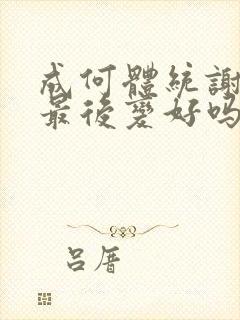 成何體統謝
最後變好嗎
呂厝